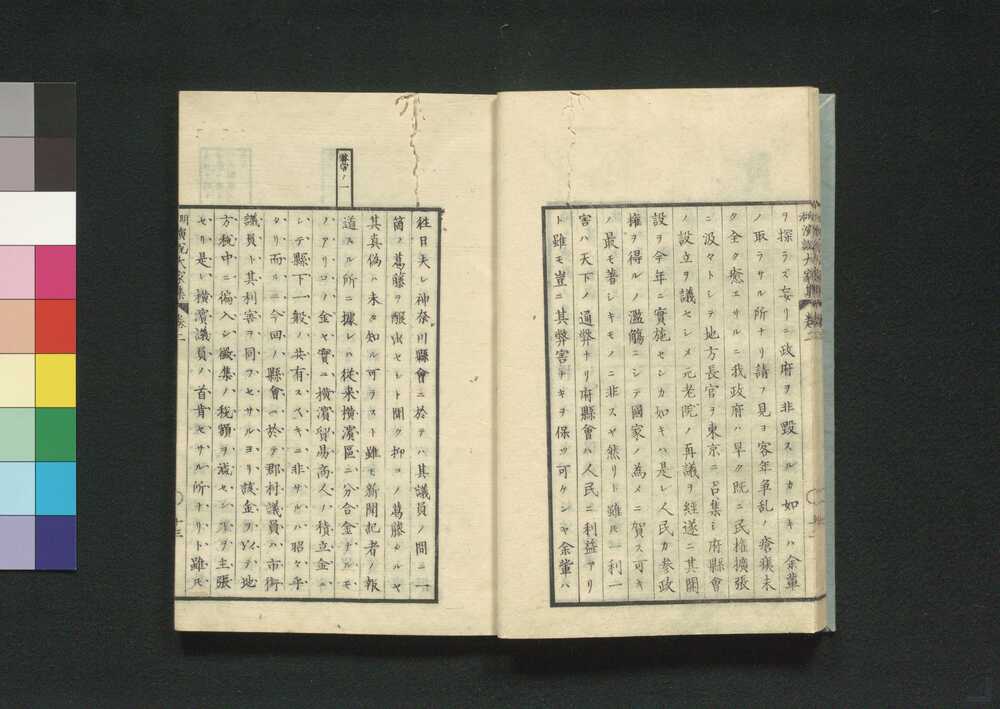 ヲ探ラズ妄リニ政府ヲ非毀スルカ如キハ余輩
ノ取ラサル所ナリ請フ見ヨ客年争乱ノ瘡痍未
タ全ク癒エサルニ我政府ハ早ク既ニ民権擴張
ニ汲々トシテ地方長官ヲ東京ニ召集シ府縣會
ノ設立ヲ議セシメ元老院ノ再議ヲ経遂ニ其開
設ヲ今年ニ實施セシカ如キハ是レ人民カ参政
權ヲ得ルノ濫觴ニシテ國家ノ為メニ賀ス可キ
ノ最モ著シキモノニ非スヤ然リト雖モ一利一
害ハ天下ノ通弊ナリ府縣會ハ人民ニ利益アリ
ト雖モ豈ニ其弊害ナキヲ保ツ可ケンヤ余輩ハ
弊害ノ一
徃日夫レ神奈川縣會ニ於テハ其議員ノ間ニ一
箇ノ葛藤ヲ醸出セシト聞ク抑コノ葛藤タルヤ
其真偽ハ未タ知ル可ラスト雖モ新聞記者ノ報
道スル所ニ據レハ従来横濱區ニ分合金ナルモ
ノアリコノ金ヤ實ニ横濱貿易商人ノ積立金ニ
シテ縣下一般ノ共有スベキニ非サルハ昭々乎
タリ而ルニ今回ノ縣會ニ於テ郡村議員ハ市街
議員ト其利害ヲ同フセサルヨリ該金ヲ以テ地
方税中ニ偏入シ徴集ノ税額ヲ減セン事ヲ主張
セリ是レ横濱議員ノ首肯セサル所ナリト雖モ
卷二
廿三